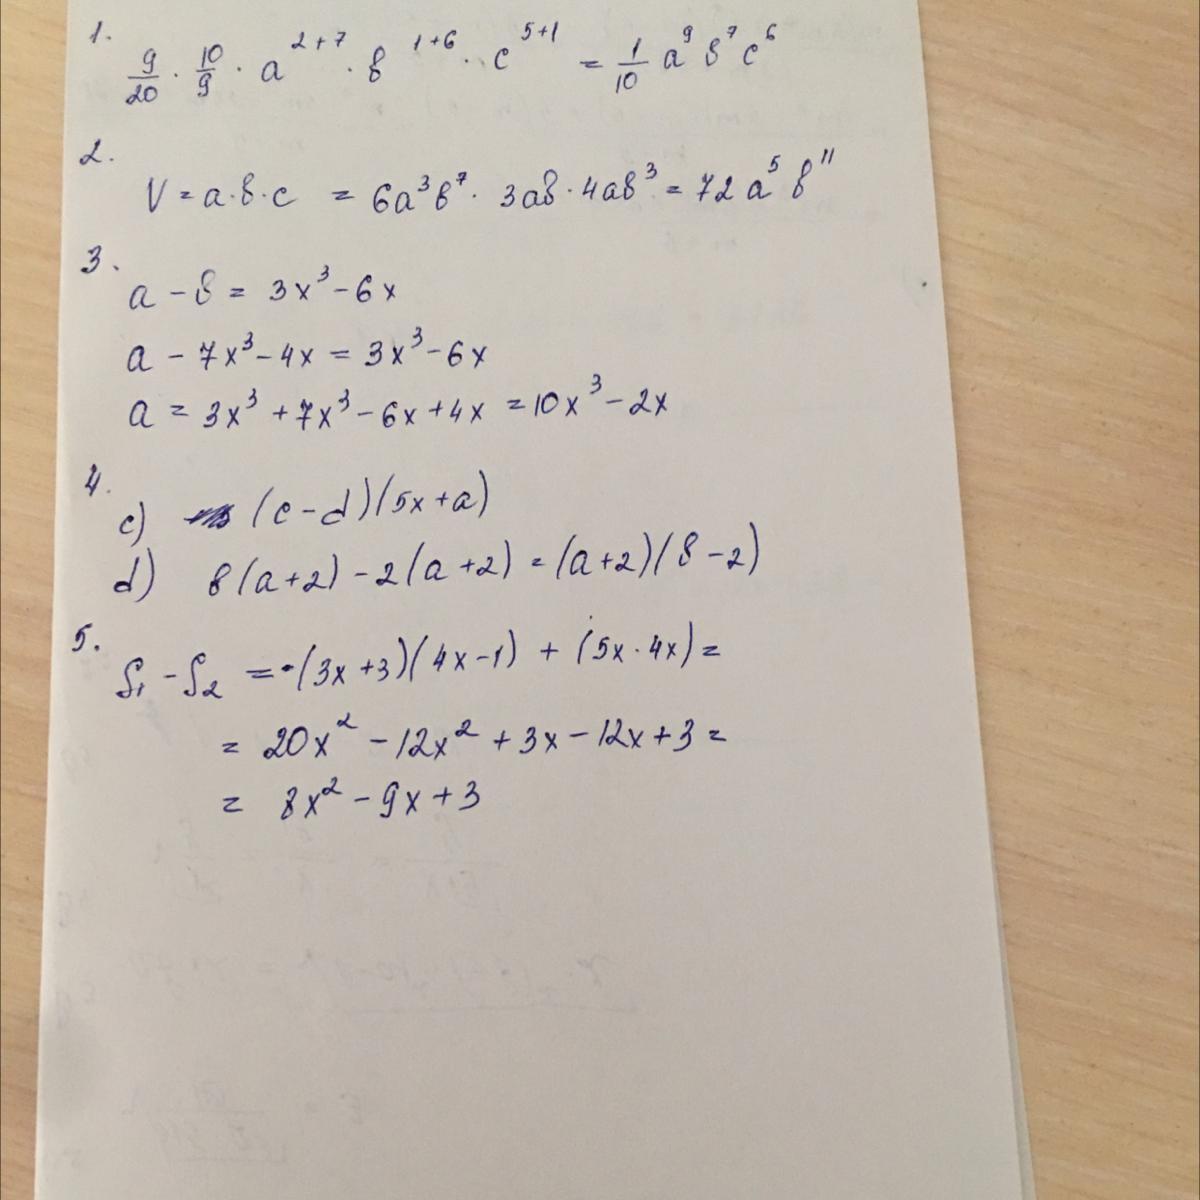 1.
9/20 · 10/9 · a^{2+7} · b^{1+6} · c^{5+1} = 1/10 a^9 b^7 c^6
2.
V = a·b·c = 6a^3b^7 · 3ab · 4ab^3 = 72a^5b^{11}
3.
a - b = 3x^3 - 6x
a - 7x^3 - 4x = 3x^3 - 6x
a = 3x^3 + 7x^3 - 6x + 4x = 10x^3 - 2x
4.
c) (c - d)(5x + a)
d) b(a+2) - 2(a+2) = (a+2)(b-2)
5.
S1 - S2 = -(3x+3)(4x-1) + (5x·4x) =
= 20x^2 - 12x^2 + 3x - 12x + 3 =
= 8x^2 - 9x + 3